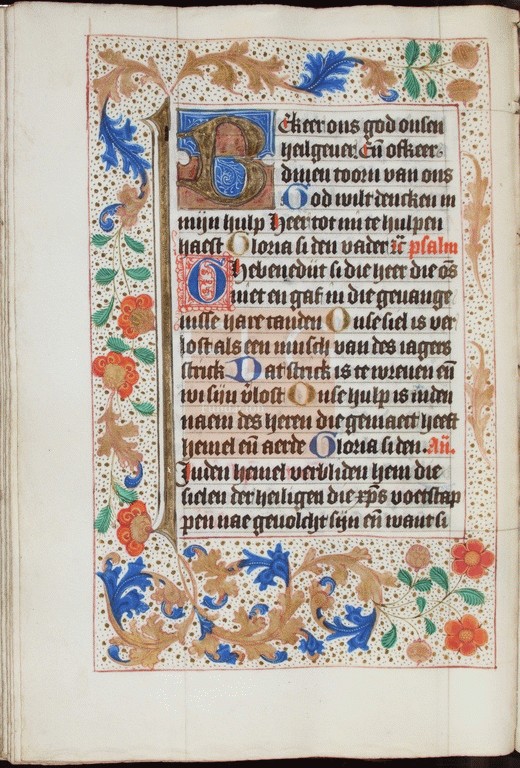 Bekeer ons god onsen
heilgeuer. Eñ ofkeer
dinen toorn van ons
God wilt dencken in
mijn hulp Heer tot mi te hulpen
haest Gloria si den vader ic psalm
Ghebenedijt si die heer die ōs
niet en gaf in die geuange
nisse hare tanden Onse siel is ver
lost als een musch van des iagers
strick Dat strick is te wreuen eñ
wi sijn v̄lost Onse hulp is inden
naem des heren die gemaect heeft
hemel eñ aerde Gloria si den. Añ.
Inden hemel verbliden hem die
sielen der heiligen die xp̄s voetstap
pen nae geuolcht sijn eñ want si